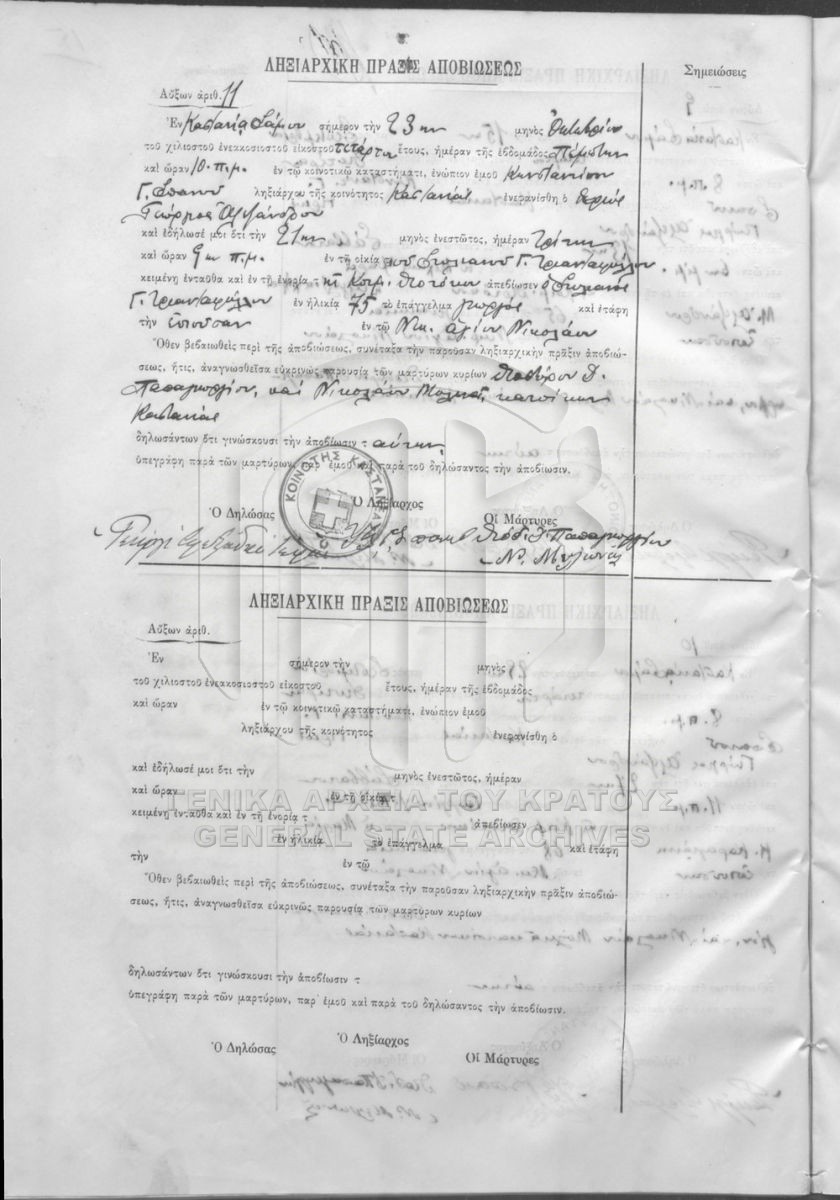 ΛΗΞΙΑΡΧΙΚΗ ΠΡΑΞΙΣ ΑΠΟΒΙΩΣΕΩΣ
Σημειώσεις
Αὔξων ἀριθ. 11
Ἐν Καστανέᾳ Σάμου σήμερον τὴν 23ην μηνὸς Ὀκτωβρίου
τοῦ χιλιοστοῦ ἐνεακοσιοστοῦ εἰκοστοῦ τετάρτου ἔτους, ἡμέραν τῆς ἑβδομάδος Πέμπτην
καὶ ὥραν 10 π.μ. ἐν τῷ κοινοτικῷ καταστήματι, ἐνώπιον ἐμοῦ Κωνσταντίνου
Γ. Σπανοῦ ληξιάρχου τῆς κοινότητος Καστανέας ἐνεφανίσθη ὁ ἱερεὺς
Γεώργιος Ἀλεξάνδρου
καὶ ἐδήλωσέ μοι ὅτι τὴν 21ην μηνὸς ἐνεστῶτος, ἡμέραν Τρίτην
καὶ ὥραν 9ην π.μ. ἐν τῇ οἰκίᾳ τοῦ Στυλιανοῦ Γ. Τριανταφύλλου
κειμένῃ ἐνταῦθα καὶ ἐν τῇ ἐνορίᾳ τῆς Κοιμ. Θεοτόκου ἀπεβίωσεν ὁ Στυλιανὸς
Γ. Τριανταφύλλου ἐν ἡλικίᾳ 75 τὸ ἐπάγγελμα γεωργὸς καὶ ἐτάφη
τὴν ἰδίαν ἐν τῷ Νεκ. Ἁγίου Νικολάου
Ὅθεν βεβαιωθεὶς περὶ τῆς ἀποβιώσεως, συνέταξα τὴν παροῦσαν ληξιαρχικὴν πρᾶξιν ἀποβιώ-
σεως, ἥτις, ἀναγνωσθεῖσα εὐκρινῶς παρουσίᾳ τῶν μαρτύρων κυρίων Θεοδώρου Δ.
Παπαγεωργίου, καὶ Νικολάου Μυλωνᾶ, κατοίκων
Καστανέας
δηλωσάντων ὅτι γινώσκουσι τὴν ἀποβίωσιν ταύτην
ὑπεγράφη παρὰ τῶν μαρτύρων, παρ' ἐμοῦ καὶ παρὰ τοῦ δηλώσαντος τὴν ἀποβίωσιν.
ΚΟΙΝΟΤΗΣ ΚΑΣΤΑΝΕΑΣ
Ὁ Δηλώσας Ὁ Ληξίαρχος Οἱ Μάρτυρες
Σπανὸς Θεόδ. Δ. Παπαγεωργίου
Ν. Μυλωνᾶς
ΛΗΞΙΑΡΧΙΚΗ ΠΡΑΞΙΣ ΑΠΟΒΙΩΣΕΩΣ
Αὔξων ἀριθ.
Ἐν σήμερον τὴν μηνὸς
τοῦ χιλιοστοῦ ἐνεακοσιοστοῦ εἰκοστοῦ ἔτους, ἡμέραν τῆς ἑβδομάδος
καὶ ὥραν ἐν τῷ κοινοτικῷ καταστήματι, ἐνώπιον ἐμοῦ
ληξιάρχου τῆς κοινότητος ἐνεφανίσθη ὁ
καὶ ἐδήλωσέ μοι ὅτι τὴν μηνὸς ἐνεστῶτος, ἡμέραν
καὶ ὥραν ἐν τῇ οἰκίᾳ τ
κειμένῃ ἐνταῦθα καὶ ἐν τῇ ἐνορίᾳ τ ἀπεβίωσεν
ἐν ἡλικίᾳ τὸ ἐπάγγελμα καὶ ἐτάφη
τὴν ἐν τῷ
Ὅθεν βεβαιωθεὶς περὶ τῆς ἀποβιώσεως, συνέταξα τὴν παροῦσαν ληξιαρχικὴν πρᾶξιν ἀποβιώ-
σεως, ἥτις, ἀναγνωσθεῖσα εὐκρινῶς παρουσίᾳ τῶν μαρτύρων κυρίων
δηλωσάντων ὅτι γινώσκουσι τὴν ἀποβίωσιν τ
ὑπεγράφη παρὰ τῶν μαρτύρων, παρ' ἐμοῦ καὶ παρὰ τοῦ δηλώσαντος τὴν ἀποβίωσιν.
Ὁ Δηλώσας Ὁ Ληξίαρχος Οἱ Μάρτυρες
ΓΕΝΙΚΑ ΑΡΧΕΙΑ ΤΟΥ ΚΡΑΤΟΥΣ
GENERAL STATE ARCHIVES